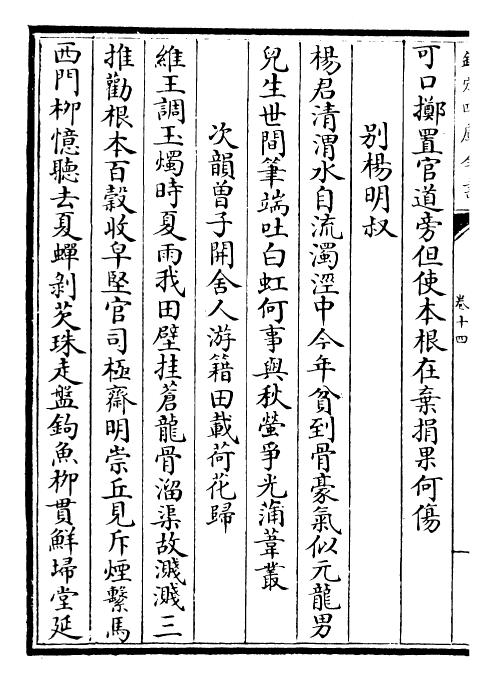 欽定四庫全書
卷十四
可口擲置官道旁但使本根在棄捐果何傷
别楊明叔
楊君清渭水自流濁涇中今年貧到骨豪氣似元龍男
兒生世間筆端吐白虹何事與秋螢爭光蒲葦叢
次韻曾子開舍人游籍田載荷花歸
維王調玉燭時夏雨我田壁挂蒼龍骨溜渠故濺濺三
推勸根本百穀收皁堅官司極齋明崇丘見斥煙繫馬
西門栁憶聽去夏蟬剝芡珠走盤鉤魚栁貫鮮埽堂延